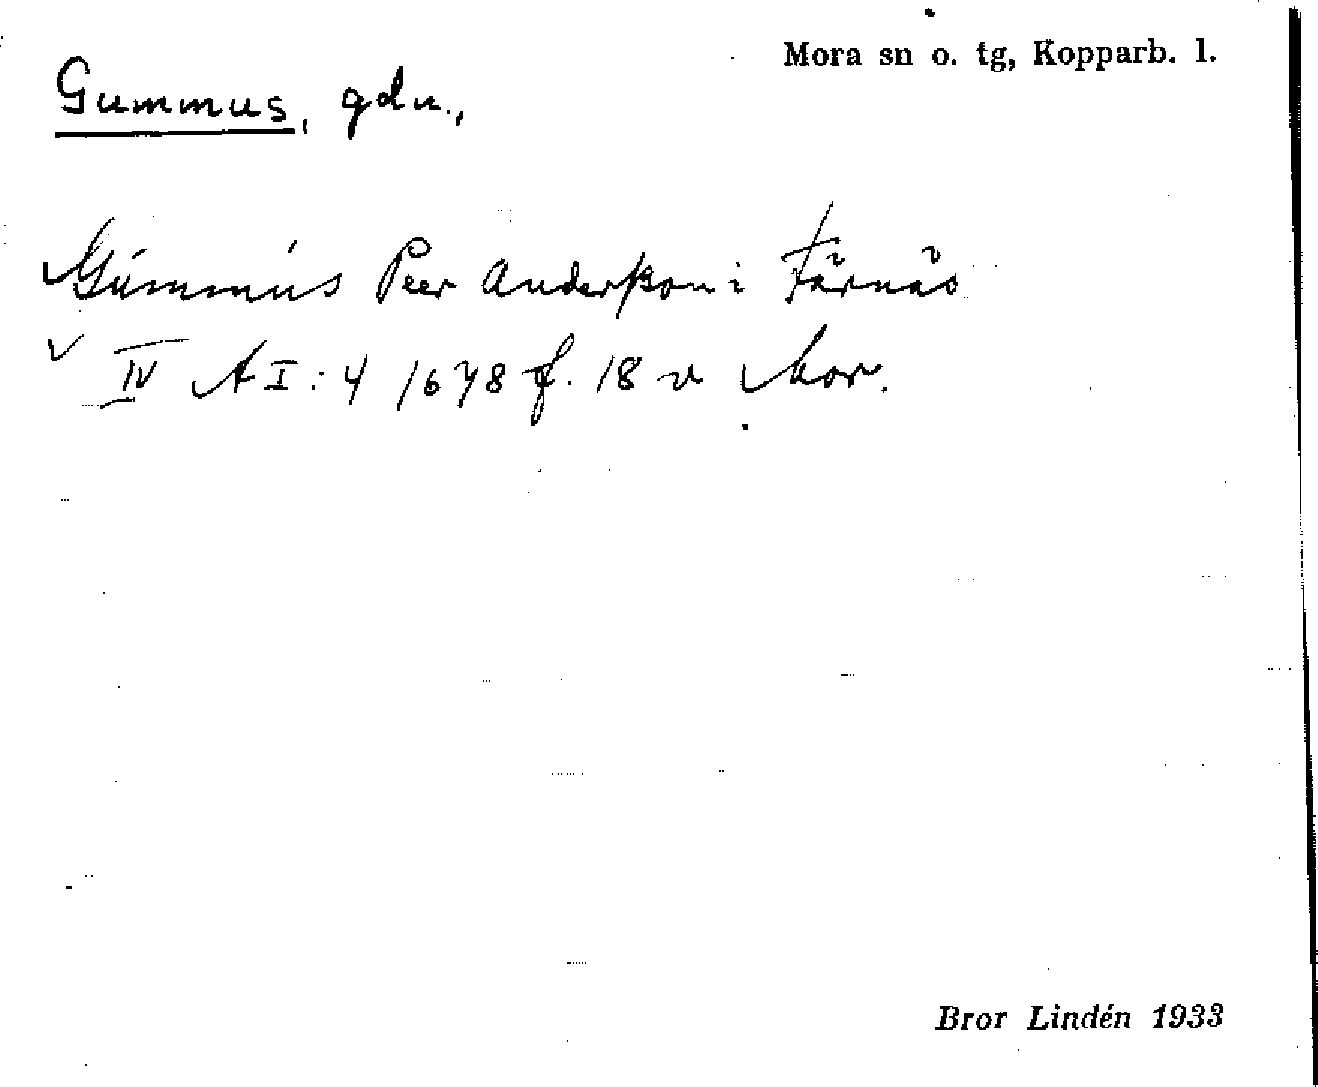 Mora sn o. tg, Kopparb. l.
Gummus, gdn.,
Gúmmús Peer Anderßon i Färnäs
√ IV A I:4 1678 f. 18 v Mor.
Bror Lindén 1933